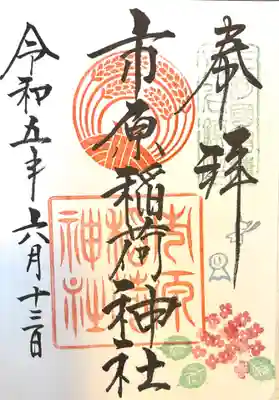 奉拝
市原稲荷神社
令和五年六月十三日
市原
稲荷
神社